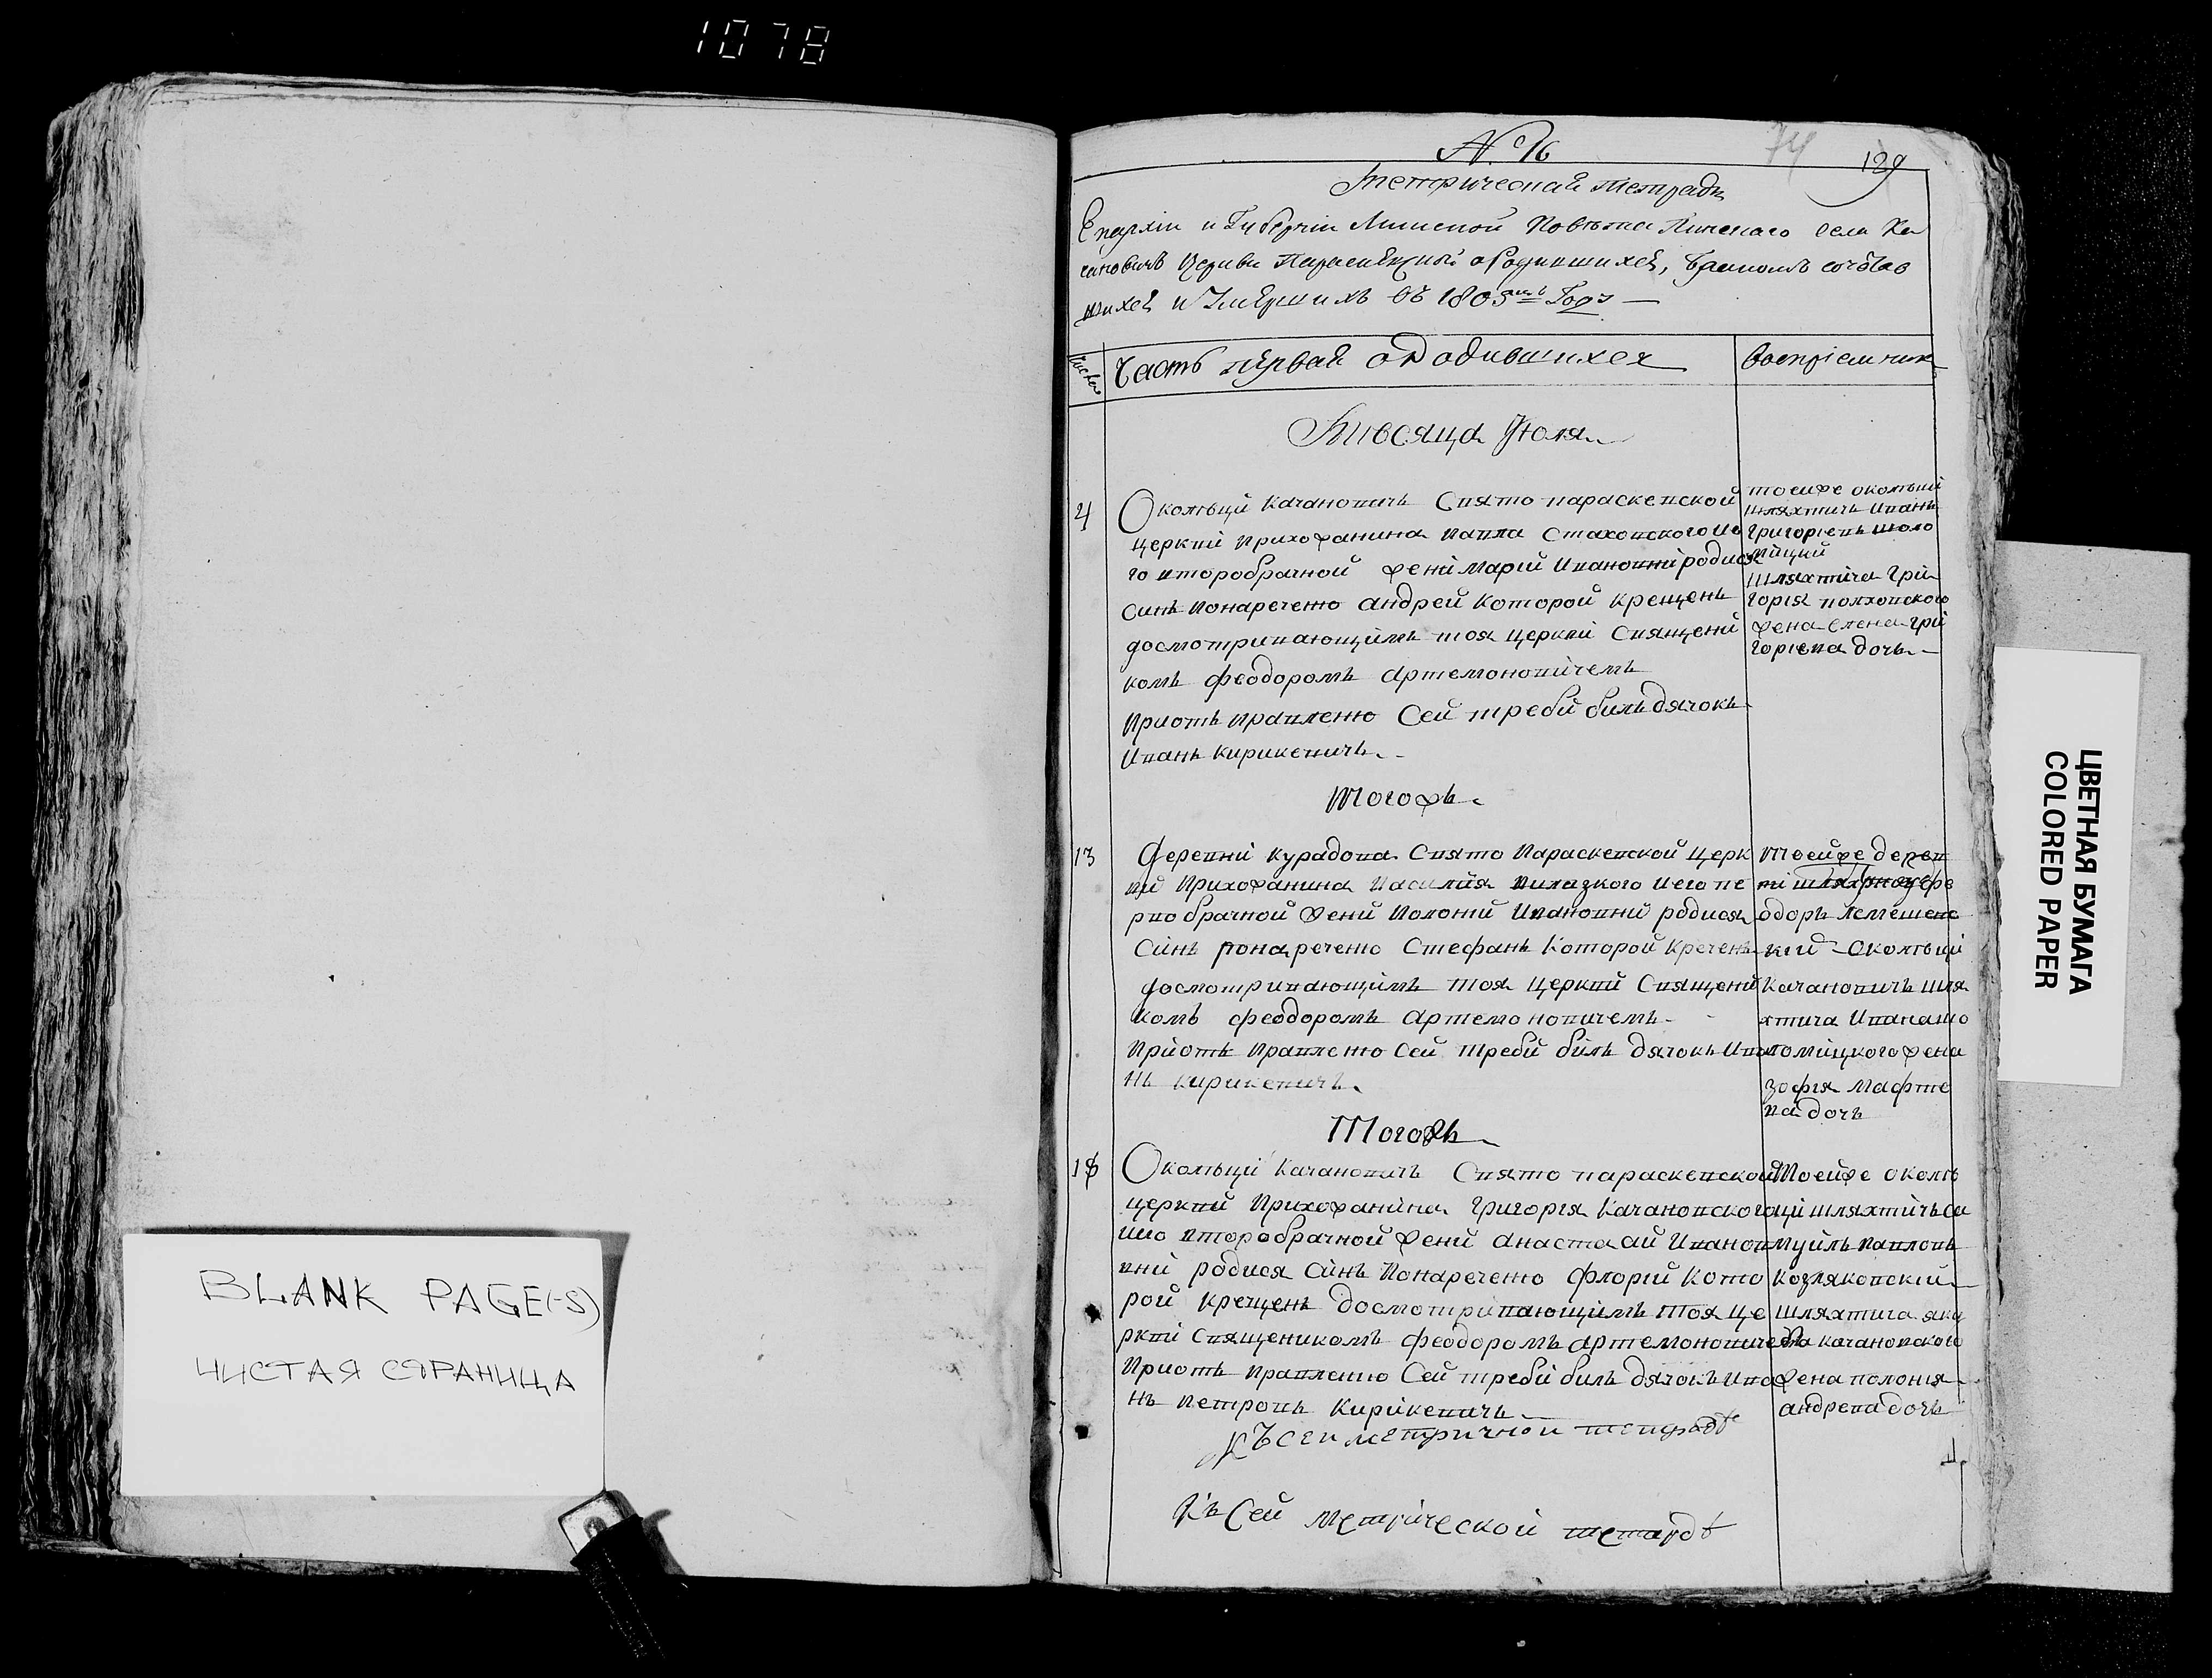 1078
№ 16
74
129
Метрическая тетрадь
Епархіи и Губерніи Минской Повѣта Пинскаго села Ка
чановичъ Церкви Параскевской о Родившихся, бракомъ сочетав
шихся и Умершихъ въ 1805 Годъ
Числа
Часть первая о Родившихся
Воспріемник
Мѣсяца Июля
4
Околѣцй Качановичъ Свято параскевской
церквй прихожанина Павла Стаховского ие
го второбрачной женй Марій Ивановнй родися
синъ понаречено андрей которой крещенъ
досмотривающймъ тоя церквй Священй
комъ феодоромъ Артемоновйчемъ
Приотъ правленю Сей требй билъ дячокъ
Иванъ Кирикевичъ
тоейже околѣцй
шляхтичъ Иванъ
Григорієвъ шоло
мйций
Шляхтйча Грй
горія полховского
жена елена Грй
горієва дочь
Тогожъ
13
Деревнй курадова Свято Параскевской Церк
вй Прихожанина Василйя пилазкого иего пе
рвобрачной женй Полонй Ивановнй родися
Сйнъ понаречено Стефанъ Которой Креченъ
досмотривающймъ тоя Церквй Священй
комъ феодоромъ Артемоновичемъ
Прйотъ правленю Сей требй бйлъ дячокъ Ива
нъ кирикевичъ
Тоейже дерев
нй
одоръ Лемешевс
кий Околѣцй
Качановичъ шля
хтича Ивана шо
ломйцкого жена
зофія Мафте
ва дочь
Тогожъ
18
Околѣцй Качановичъ Свято параскевской
церквй Прихожанйна Григорія Качановского
ииго второбрачной женй анастасий Иванов
внй родися Сйнъ Понаречено Флорій Кото
рой крещенъ досмотрйвающймъ тоя це
рквй Священикомъ феодоромъ Артемоновичемъ
Приотъ правленю Сей требй билъ дячокъ Ива
нъ Петровъ Кирйкевичъ
Тоейже околѣ
цй шляхтйчъ Са
муйлъ Павловъ
Козляковскій
шляхтича яку
ба качановского
жена полонія
андрева дочь
Къ сеи метричной тетрадѣ
Къ Сей метрической тетардѣ
BLANK PAGE(-S)
ЧИСТАЯ СТРАНИЦА
ЦВЕТНАЯ БУМАГА
COLORED PAPER